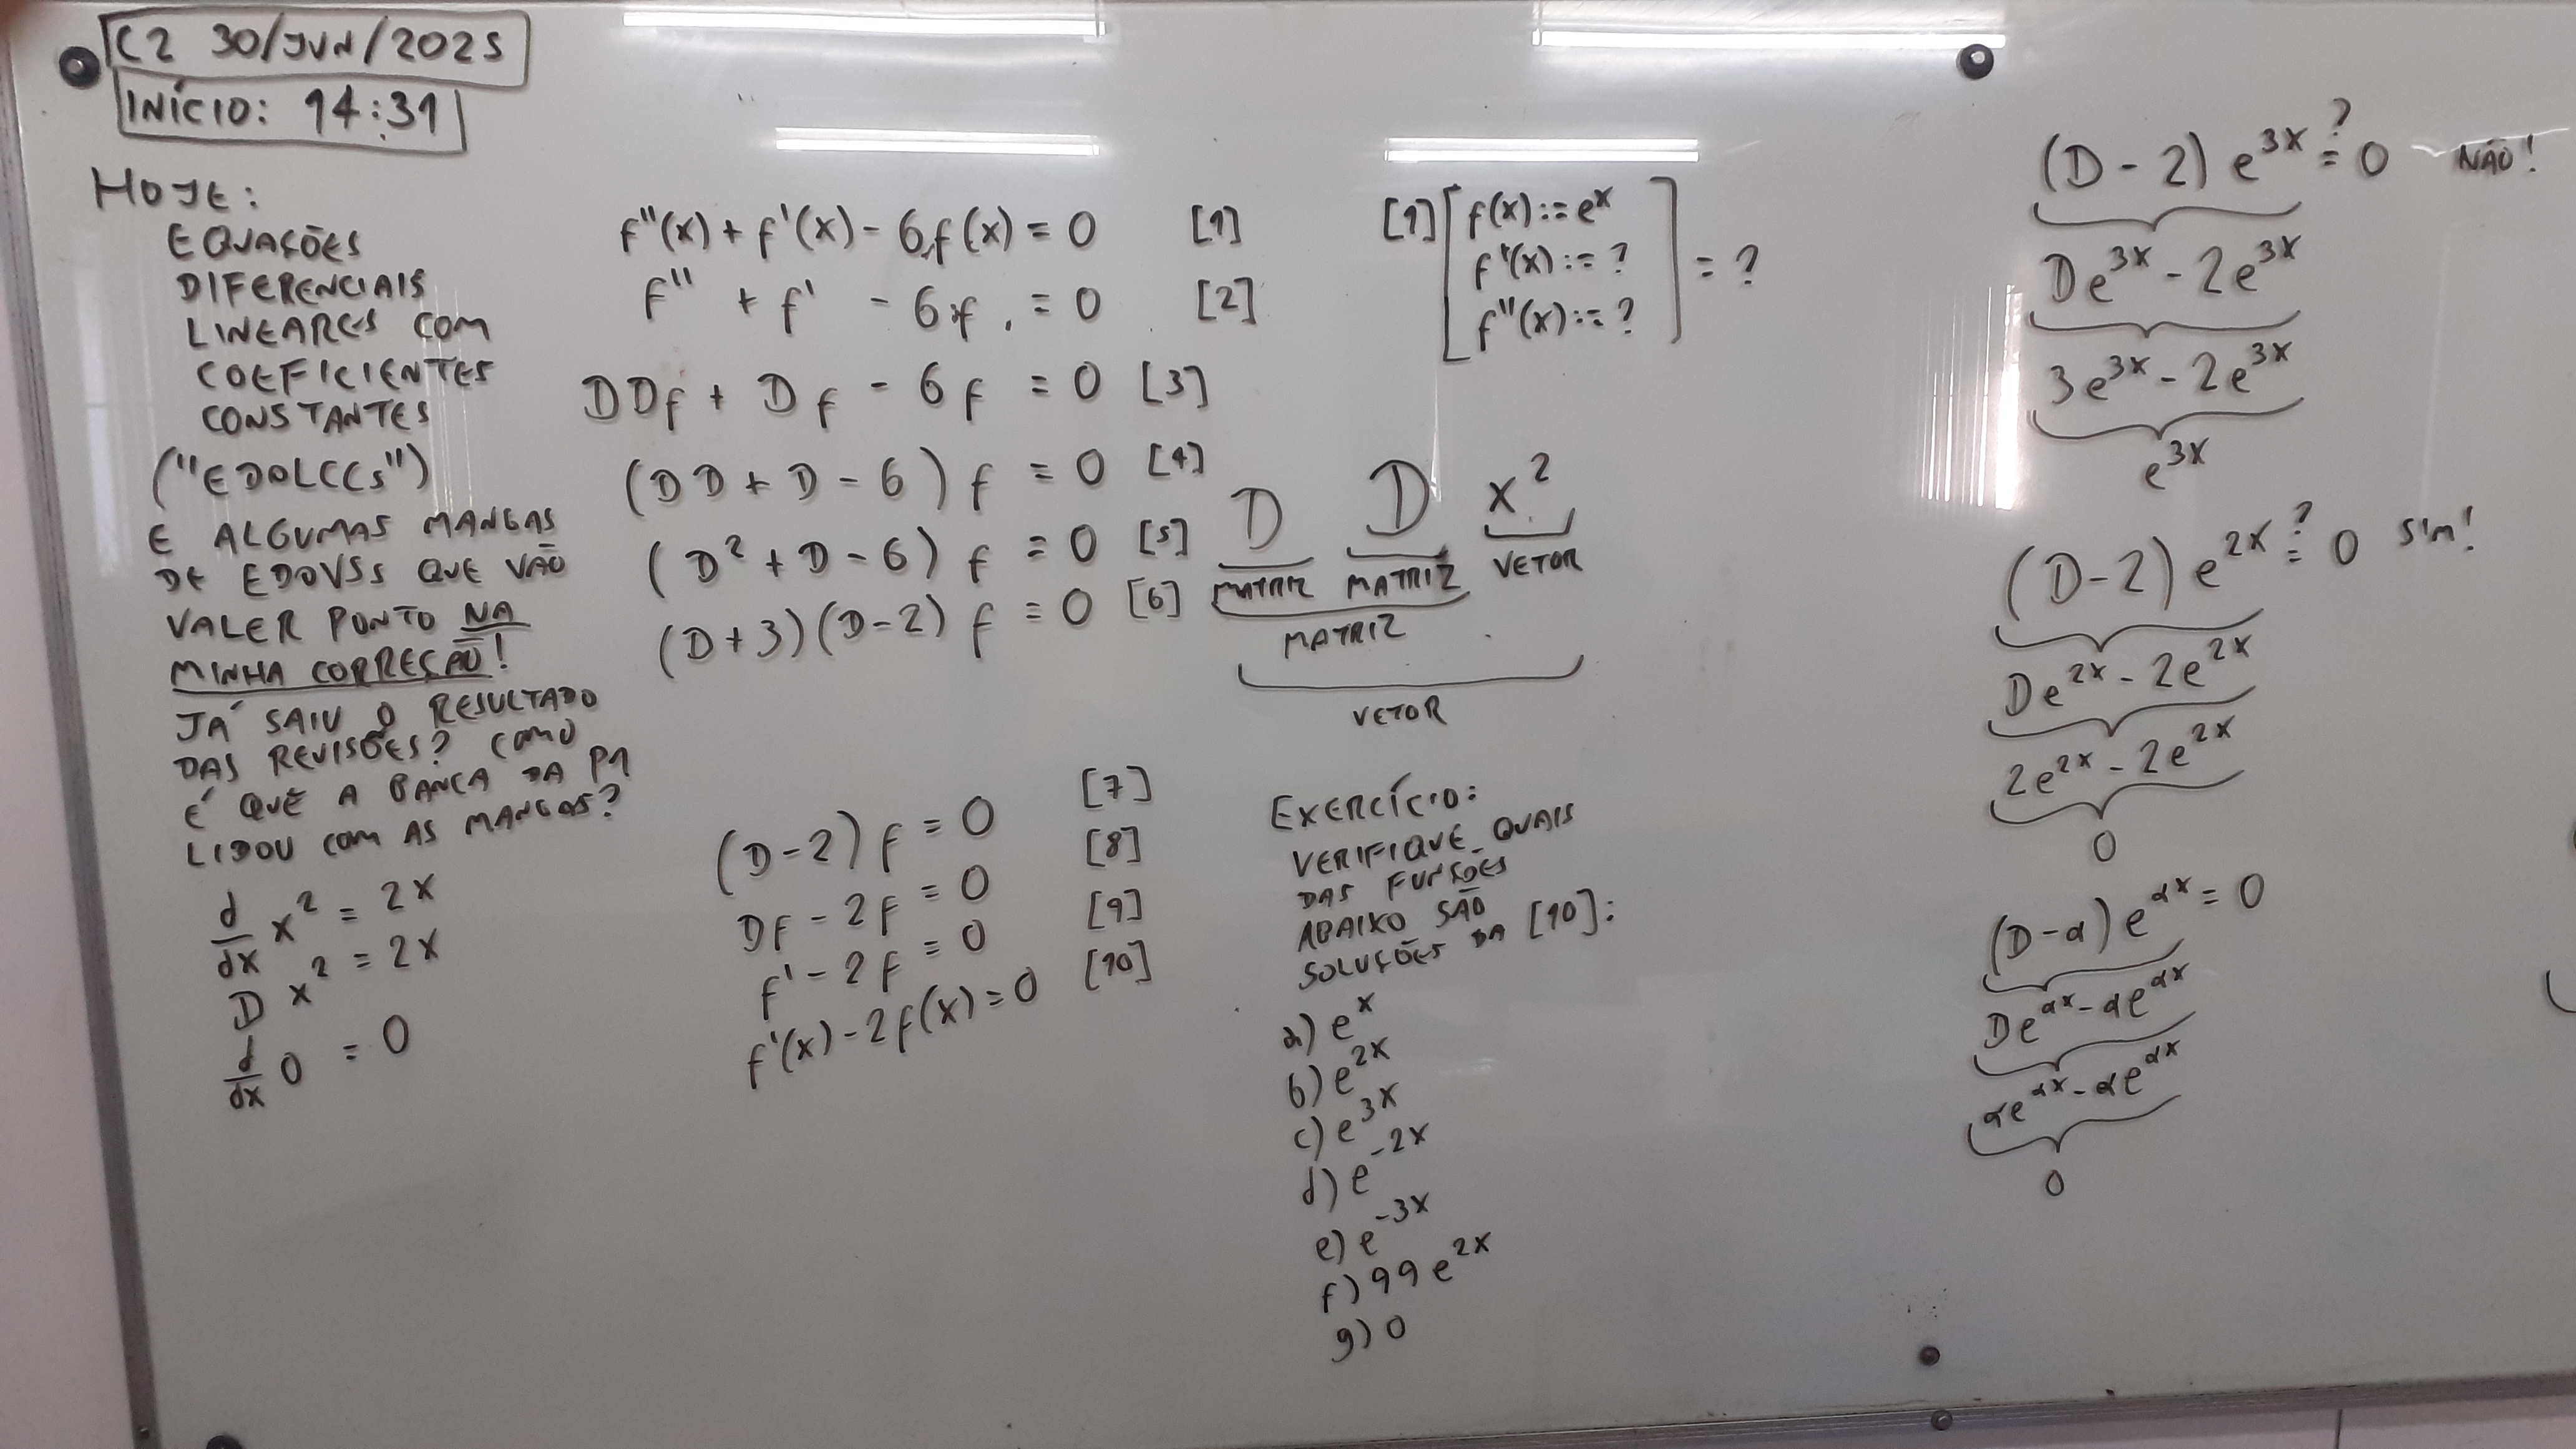 C2 30/JUN/2025
INÍCIO: 14:31
HOJE:
EQUAÇÕES
DIFERENCIAIS
LINEARES COM
COEFICIENTES
CONSTANTES
("EDOLCCs")
E ALGUMAS MANGAS
DE EDOVSs QUE VÃO
VALER PONTO NA
MINHA CORREÇÃO!
JÁ SAIU O RESULTADO
DAS REVISÕES? COMO
É QUE A BANCA DA P1
LIDOU COM AS MANGAS?
d/dx x² = 2x
D x² = 2x
d/dx 0 = 0
f''(x) + f'(x) - 6f(x) = 0 [1]
f'' + f' - 6f = 0 [2]
DDf + Df - 6f = 0 [3]
(DD + D - 6) f = 0 [4]
(D² + D - 6) f = 0 [5]
(D + 3)(D - 2) f = 0 [6]
(D - 2) f = 0 [7]
Df - 2f = 0 [8]
f' - 2f = 0 [9]
f'(x) - 2f(x) = 0 [10]
[1] [f(x) := eˣ
f'(x) := ?
f''(x) := ?] = ?
D D x²
MATRIZ MATRIZ VETOR
MATRIZ
VETOR
EXERCÍCIO:
VERIFIQUE QUAIS
DAS FUNÇÕES
ABAIXO SÃO
SOLUÇÕES DA [10]:
a) eˣ
b) e²ˣ
c) e³ˣ
d) e⁻²ˣ
e) e⁻³ˣ
f) 99e²ˣ
g) 0
(D - 2) e³ˣ ?= 0 NÃO!
De³ˣ - 2e³ˣ
3e³ˣ - 2e³ˣ
e³ˣ
(D - 2) e²ˣ ?= 0 SIM!
De²ˣ - 2e²ˣ
2e²ˣ - 2e²ˣ
0
(D - α) e^αx = 0
De^αx - αe^αx
αe^αx - αe^αx
0